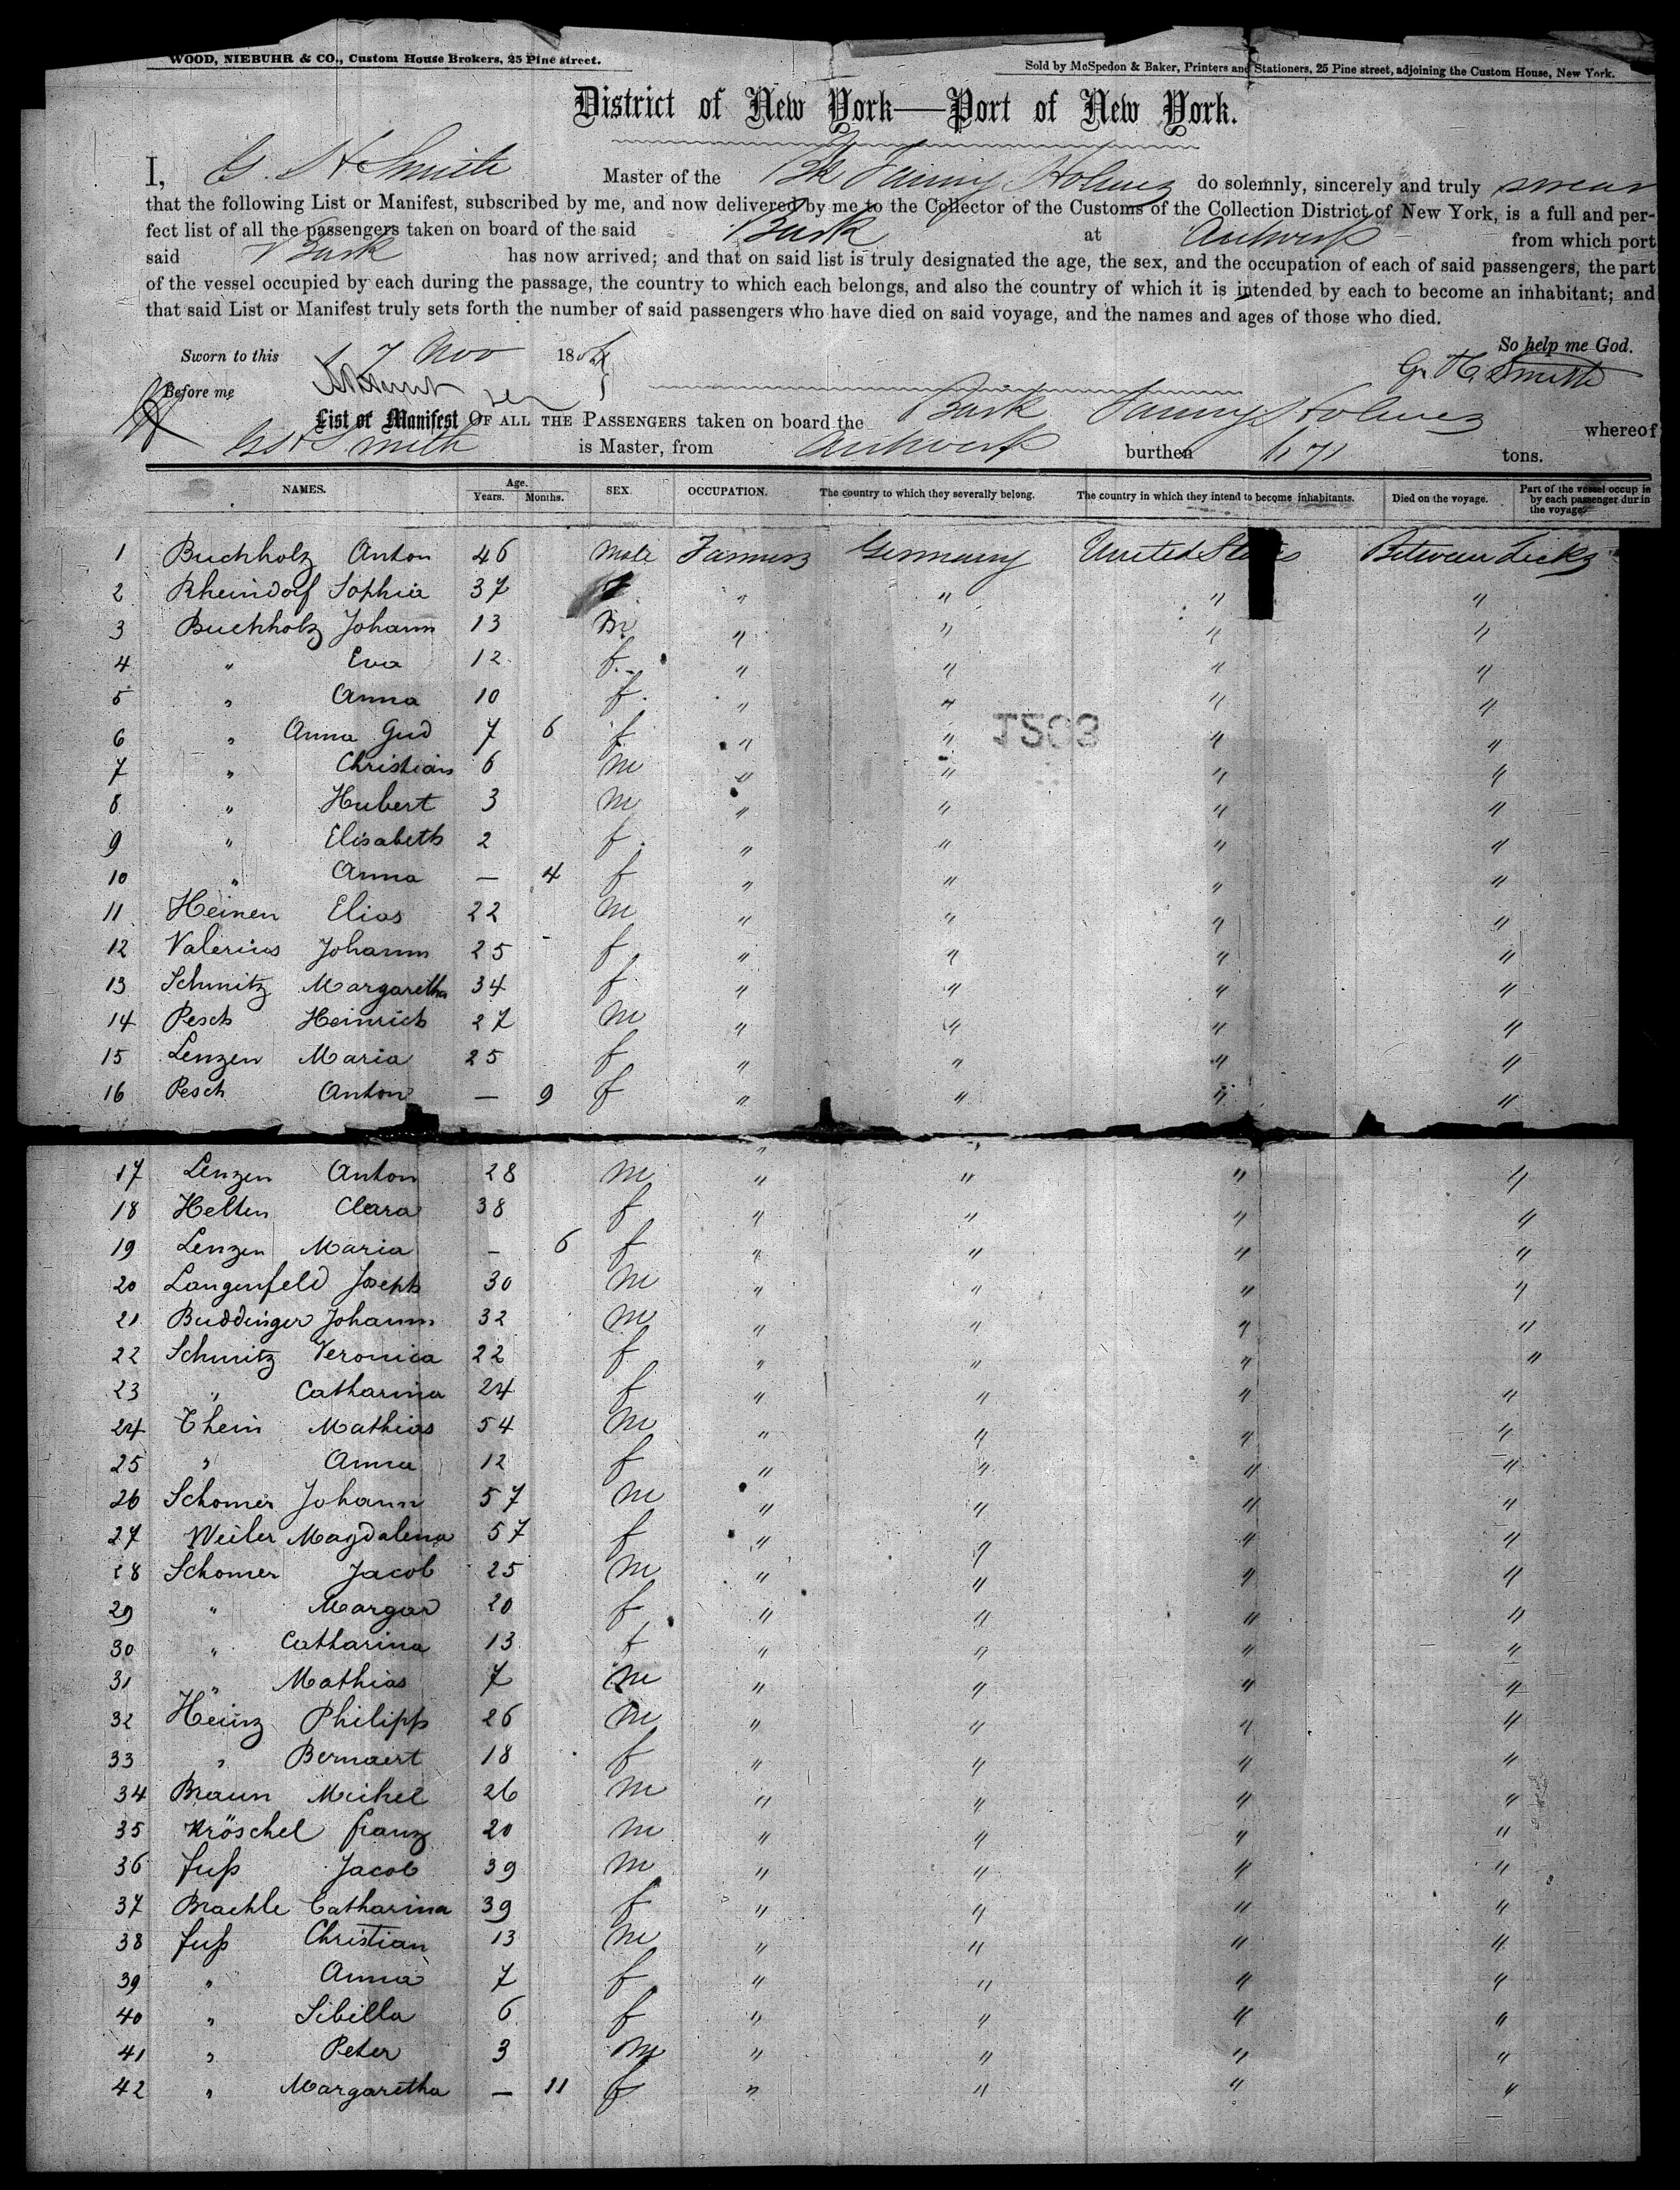 WOOD, NIEBUHR & CO., Custom House Brokers, 25 Pine street.
Sold by McSpedon & Baker, Printers and Stationers, 25 Pine street, adjoining the Custom House, New York.
District of New York—Port of New York.
I, G. H Smith Master of the Bk Fanny Holmes do solemnly, sincerely and truly swear
that the following List or Manifest, subscribed by me, and now delivered by me to the Collector of the Customs of the Collection District of New York, is a full and per-
fect list of all the passengers taken on board of the said Bark at Antwerp from which port
said Bark has now arrived; and that on said list is truly designated the age, the sex, and the occupation of each of said passengers, the part
of the vessel occupied by each during the passage, the country to which each belongs, and also the country of which it is intended by each to become an inhabitant; and
that said List or Manifest truly sets forth the number of said passengers who have died on said voyage, and the names and ages of those who died.
So help me God.
Sworn to this 7 Nov 186
G. H. Smith
Before me
List or Manifest OF ALL THE PASSENGERS taken on board the Bark Fanny Holmes whereof
G H Smith is Master, from Antwerp burthen tons.
NAMES. Age. Years. Months. SEX. OCCUPATION. The country to which they severally belong. The country in which they intend to become inhabitants. Died on the voyage. Part of the vessel occup by each passenger dur in the voyage.
1 Buchholz Anton 46 Male Farmers Germany United States Between Decks
2 Rheindorf Sophia 37 f " " " "
3 Buchholz Johann 13 m " " " "
4 " Eva 12 f. " " " "
5 " Anna 10 f. " " " "
6 " Anna Gud 7 6 f " " " "
1203
7 " Christian 6 m " " " "
8 " Hubert 3 m " " " "
9 " Elisabeth 2 f. " " " "
10 " Anna — 4 f " " " "
11 Heinen Elias 22 m " " " "
12 Valerius Johann 25 f " " " "
13 Schmitz Margaretha 34 f " " " "
14 Pesch Heinrich 27 m " " " "
15 Lenzen Maria 25 f " " " "
16 Pesch Anton — 9 f " " " "
17 Lenzen Anton 28 m " " " "
18 Helten Clara 38 f " " " "
19 Lenzen Maria — 6 f " " " "
20 Langenfeld Joseph 30 m " " " "
21 Buddinger Johann 32 m " " " "
22 Schmitz Veronica 22 f " " " "
23 " Catharina 24 f " " " "
24 Thein Mathias 54 m " " " "
25 " Anna 12 f " " " "
26 Schomer Johann 57 m " " " "
27 Weiler Magdalena 57 f " " " "
28 Schomer Jacob 25 m " " " "
29 " Margar 20 f " " " "
30 " Catharina 13 f " " " "
31 " Mathias 7 m " " " "
32 Heinz Philipp 26 m " " " "
33 " Bernaert 18 f " " " "
34 Braun Michel 26 m " " " "
35 Kröschel franz 20 m " " " "
36 fuß Jacob 39 m " " " "
37 Braehle Catharina 39 f " " " "
38 fuß Christian 13 m " " " "
39 " Anna 7 f " " " "
40 " Sibilla 6 f " " " "
41 " Peter 3 m " " " "
42 " Margaretha — 11 f " " " "